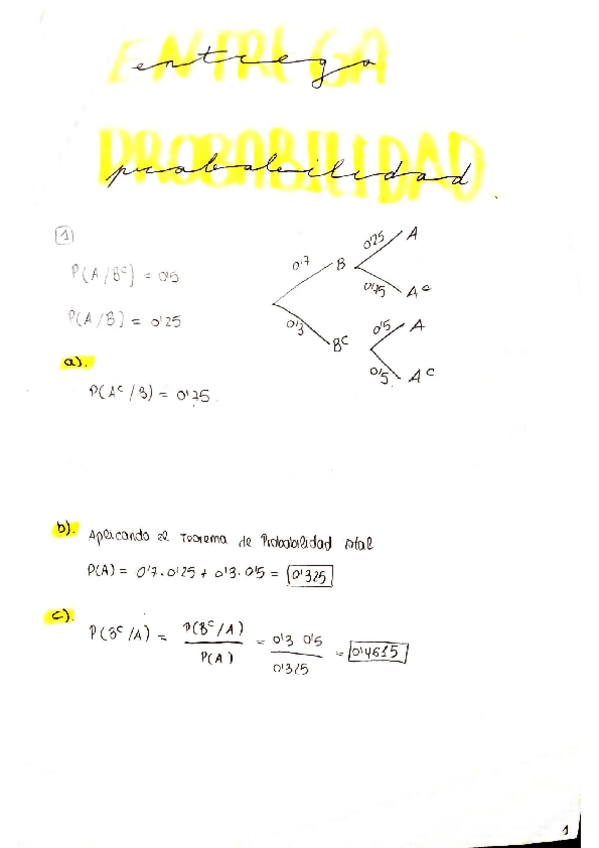 ENTREGA
entrega
PROBABILIDAD
probabilidad
1
P(A/Bᶜ) = 0'5
P(A/B) = 0'25
0'7 B 0'25 A
0'75 Aᶜ
0'3 Bᶜ 0'5 A
0'5 Aᶜ
a).
P(Aᶜ/B) = 0'75
b). Aplicando el Teorema de Probabilidad total
P(A) = 0'7 · 0'25 + 0'3 · 0'5 = 0'325
c).
P(Bᶜ/A) = P(Bᶜ/A) / P(A) = 0'3 0'5 / 0'325 = 0'4615
1